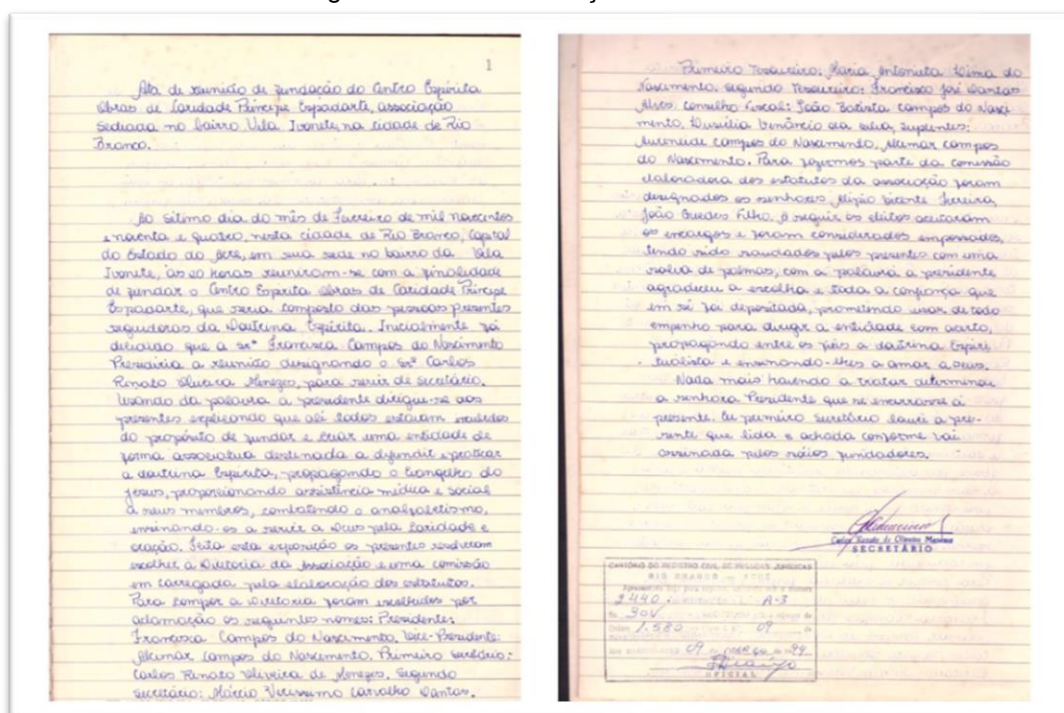 1
Ata de reunião de fundação do Centro Espírita
Obras de Caridade Príncipe Espadarte, associação
sediada no bairro Vila Ivonete, na cidade de Rio
Branco.
Ao sétimo dia do mês de Fevereiro de mil novecentos
e noventa e quatro, nesta cidade de Rio Branco, Capital
do Estado do Acre, em sua sede no bairro da Vila
Ivonete, às 20 horas reuniram-se com a finalidade
de fundar o Centro Espírita Obras de Caridade Príncipe
Espadarte, que seria composto das pessoas presentes
seguidoras da Doutrina Espírita. Inicialmente foi
decidido que a srª Francisca Campos do Nascimento
Presidiria a reunião designando o Srº Carlos
Renato Menezes, para servir de secretário.
Usando da palavra a presidente dirigiu-se aos
presentes explicando que ali todos estavam
do propósito de fundar e criar uma entidade de
forma associativa destinada a difundir e praticar
a doutrina Espírita, propagando o Evangelho de
Jesus, proporcionando assistência médica e social
a seus membros, combatendo o analfabetismo,
ensinando-os a servir a Deus pela caridade e
oração. Feita esta exposição os presentes resolveram
escolher a Diretoria da Associação e uma comissão
em carregada pela elaboração dos estatutos.
Para compor a Diretoria foram escolhidos por
aclamação os seguintes nomes: Presidente:
Francisca Campos do Nascimento. Vice-Presidente:
Alcimar Campos do Nascimento. Primeiro secretário:
Carlos Renato Oliveira de Menezes. Segundo
secretário: Márcio Verissimo Carvalho Dantas.
Primeiro Tesoureiro: Maria Antonieta Lima do
Nascimento. Segundo Tesoureiro: Francisco José Dantas
Alves. Conselho Fiscal: João Batista campos do Nasci
mento, Venâncio da Silva, Suplentes:
campos do Nascimento, Alcimar campos
do Nascimento. Para fazermos parte da comissão
elaboradora dos estatutos da associação foram
designados os senhores Vicente Ferreira,
João Guedes Filho. A seguir os eleitos aceitaram
os encargos e foram considerados empossados,
tendo sido saudados pelos presentes com uma
salva de palmas, com a palavra a presidente
agradeceu a escolha e toda a confiança que
em si foi depositada, prometendo usar de todo
empenho para dirigir a entidade com acerto,
propagando entre os fiéis a doutrina Espiri
tualista e ensinando-lhes a amar a Deus.
Nada mais havendo a tratar determinou
a senhora Presidente que se encerrasse a
presente. Eu primeiro Secretário lavrei a pre-
sente que lida e achada conforme vai
assinada pelos sócios fundadores.
Carlos Renato de Oliveira Menezes
SECRETÁRIO
CARTÓRIO DO REGISTRO CIVIL DE PESSOAS JURÍDICAS
RIO BRANCO — ACRE
2490 A-3
30V
1.580 09
09 de março de 1994
OFICIAL